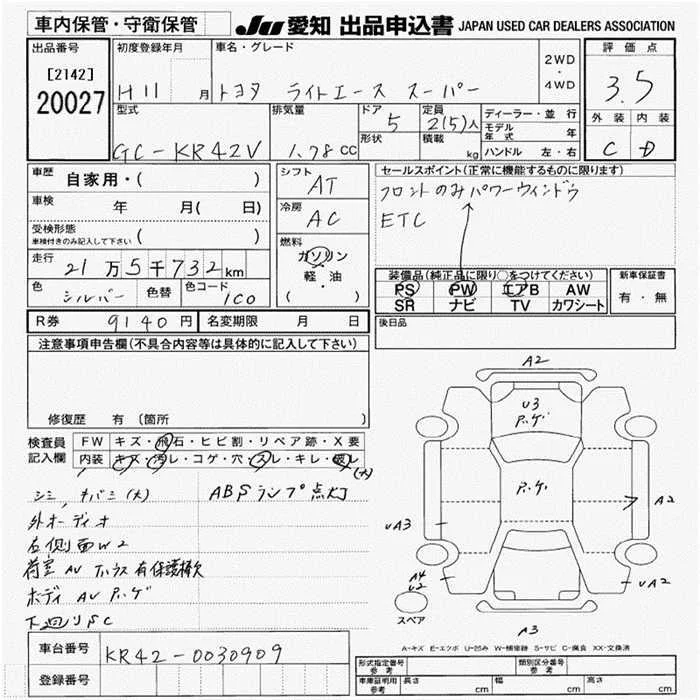 車内保管・守衛保管 JU 愛知 出品申込書 JAPAN USED CAR DEALERS ASSOCIATION
出品番号 初度登録年月 車名・グレード 評価点
[2142] 2WD・4WD
20027 H11 月 トヨタ ライトエース スーパー 3.5
型式 排気量 ドア 定員 ディーラー・並行 外装 内装
5 2(5)人 モデル年式 年
形状 積載 kg ハンドル 左・右
GC-KR42V 1.78 CC C D
車歴 自家用・( ) シフト AT セールスポイント(正常に機能するものに限ります)
車検 年 月( 日) 冷房 AC フロントのみパワーウィンドウ
受検形態 ( ) ETC
車検付きのみ記入して下さい 燃料
走行 21万5千732km ガソリン・軽・油 装備品(純正品に限り○をつけてください) 新車保証書
色 シルバー 色替 色コード 1C0 ( ) PS PW エアB AW 有・無
SR ナビ TV カワシート
R券 9140円 名変期限 月 日 後日品
注意事項申告欄(不具合内容等は具体的に記入して下さい)
修復歴 有 (箇所 )
検査員 FW キズ・飛石・ヒビ割・リペア跡・X要
記入欄 内装 キズ・汚レ・コゲ・穴・スレ・キレ・破レ
(大)
シミ, キバミ(大) ABSランプ点灯
外オーディオ
右側面W2
荷室AV
ボディ AV
下廻りSC
A2
U3
A2
UA3
A4
U2
UA2
A3
スペア
A-キズ E-エクボ U-凹み W-補修跡 S-サビ C-腐食 XX-交換済
車台番号 KR42-0030909
登録番号
形式指定番号 参考 類別区分番号 参考
車庫証明用 参考 長さ cm 幅 cm 高さ cm